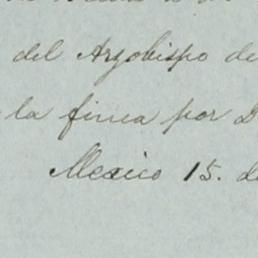 del Arzobispo de
la finca por
Mexico 15. de